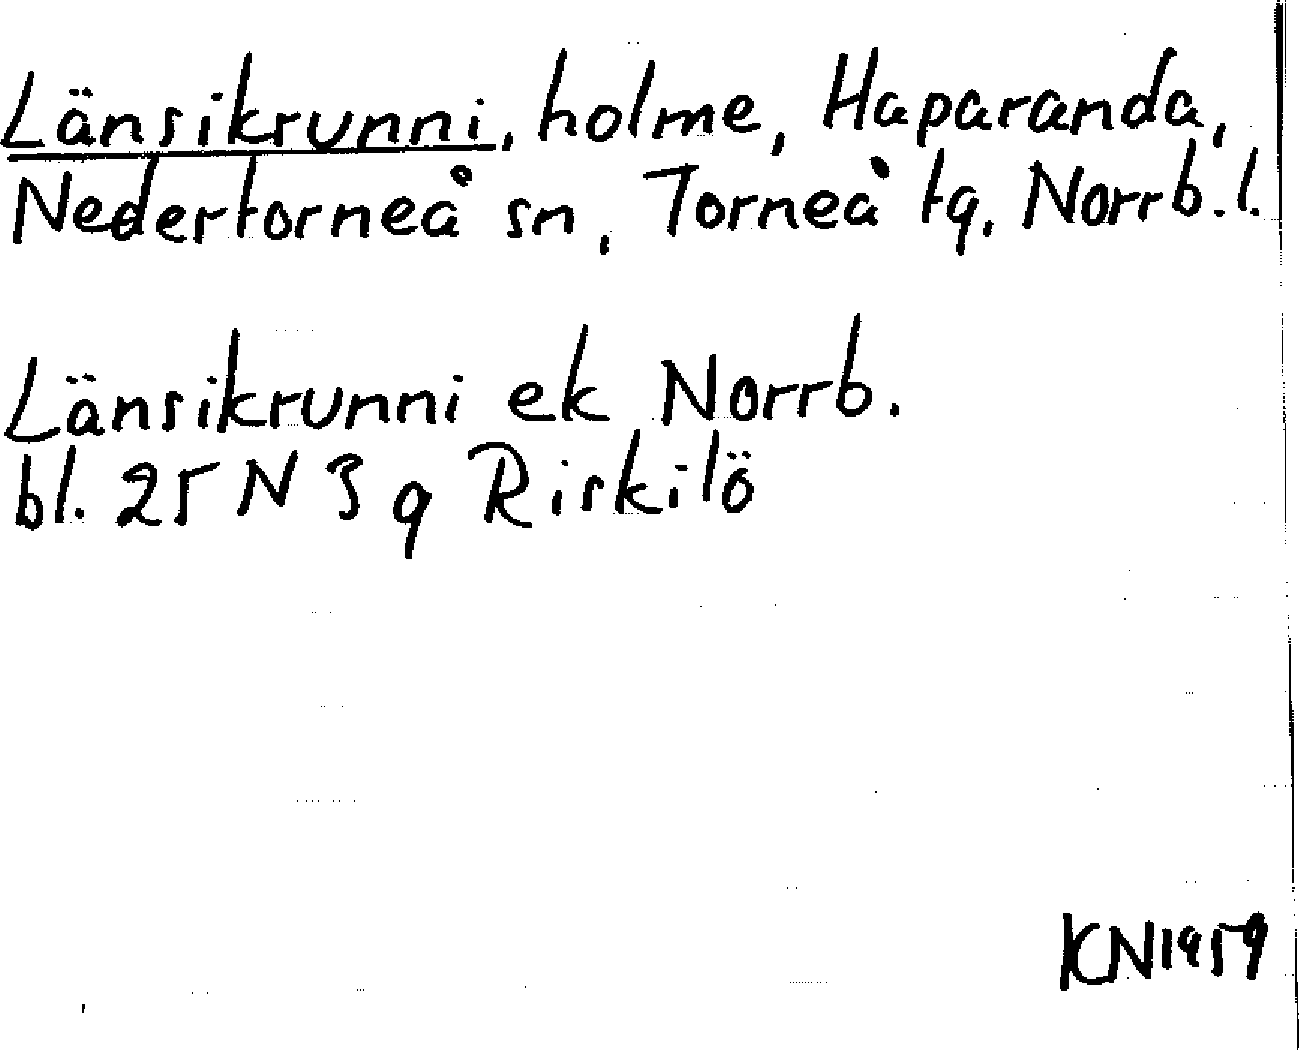 Länsikrunni, holme, Haparanda,
Nedertorneå sn, Torneå tg, Norrb.l.
Länsikrunni ek Norrb.
bl. 25 N 3 g Riskilö
KN1959